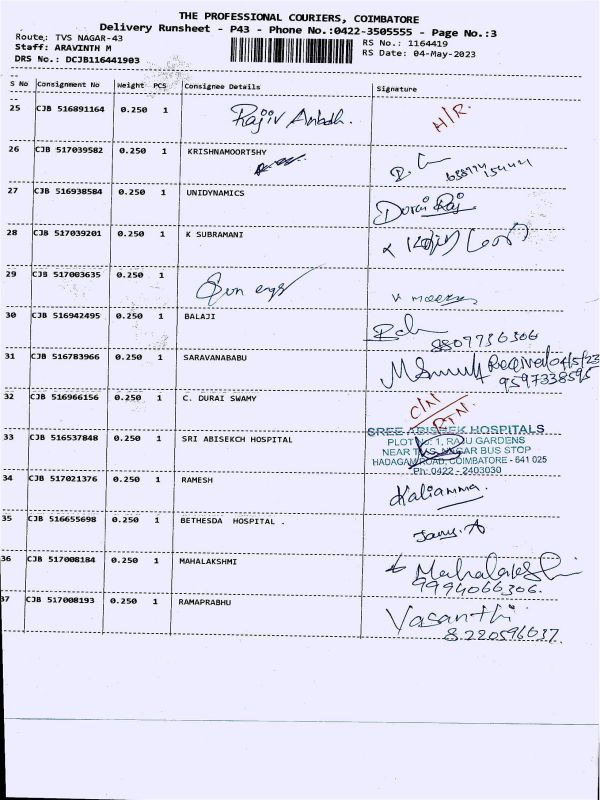 THE PROFESSIONAL COURIERS, COIMBATORE
Delivery Runsheet - P43 - Phone No.:0422-3505555 - Page No.:3
Route: TVS NAGAR-43 RS No.: 1164419
Staff: ARAVINTH M RS Date: 04-May-2023
DRS No.: DCJB116441903
S No Consignment No Weight PCS Consignee Details Signature
25 CJB 516891164 0.250 1 Rajiv H/R.
26 CJB 517039582 0.250 1 KRISHNAMOORTSHY
27 CJB 516938584 0.250 1 UNIDYNAMICS Durai Raj
28 CJB 517039201 0.250 1 K SUBRAMANI
29 CJB 517003635 0.250 1
30 CJB 516942495 0.250 1 BALAJI 8807736306
31 CJB 516783966 0.250 1 SARAVANABABU Received 04/5/23
9597338595
32 CJB 516966156 0.250 1 C. DURAI SWAMY C/N
RTN.
33 CJB 516537848 0.250 1 SRI ABISEKCH HOSPITAL SREE ABISEEK HOSPITALS
PLOT No: 1, RAJU GARDENS
NEAR TVS NAGAR BUS STOP
HADAGAM ROAD, COIMBATORE - 641 025
Ph: 0422 - 2403030
34 CJB 517021376 0.250 1 RAMESH Kaliamma
35 CJB 516655698 0.250 1 BETHESDA HOSPITAL .
36 CJB 517008184 0.250 1 MAHALAKSHMI Mahalakshmi
9994066306.
37 CJB 517008193 0.250 1 RAMAPRABHU Vasanthi
8220596037